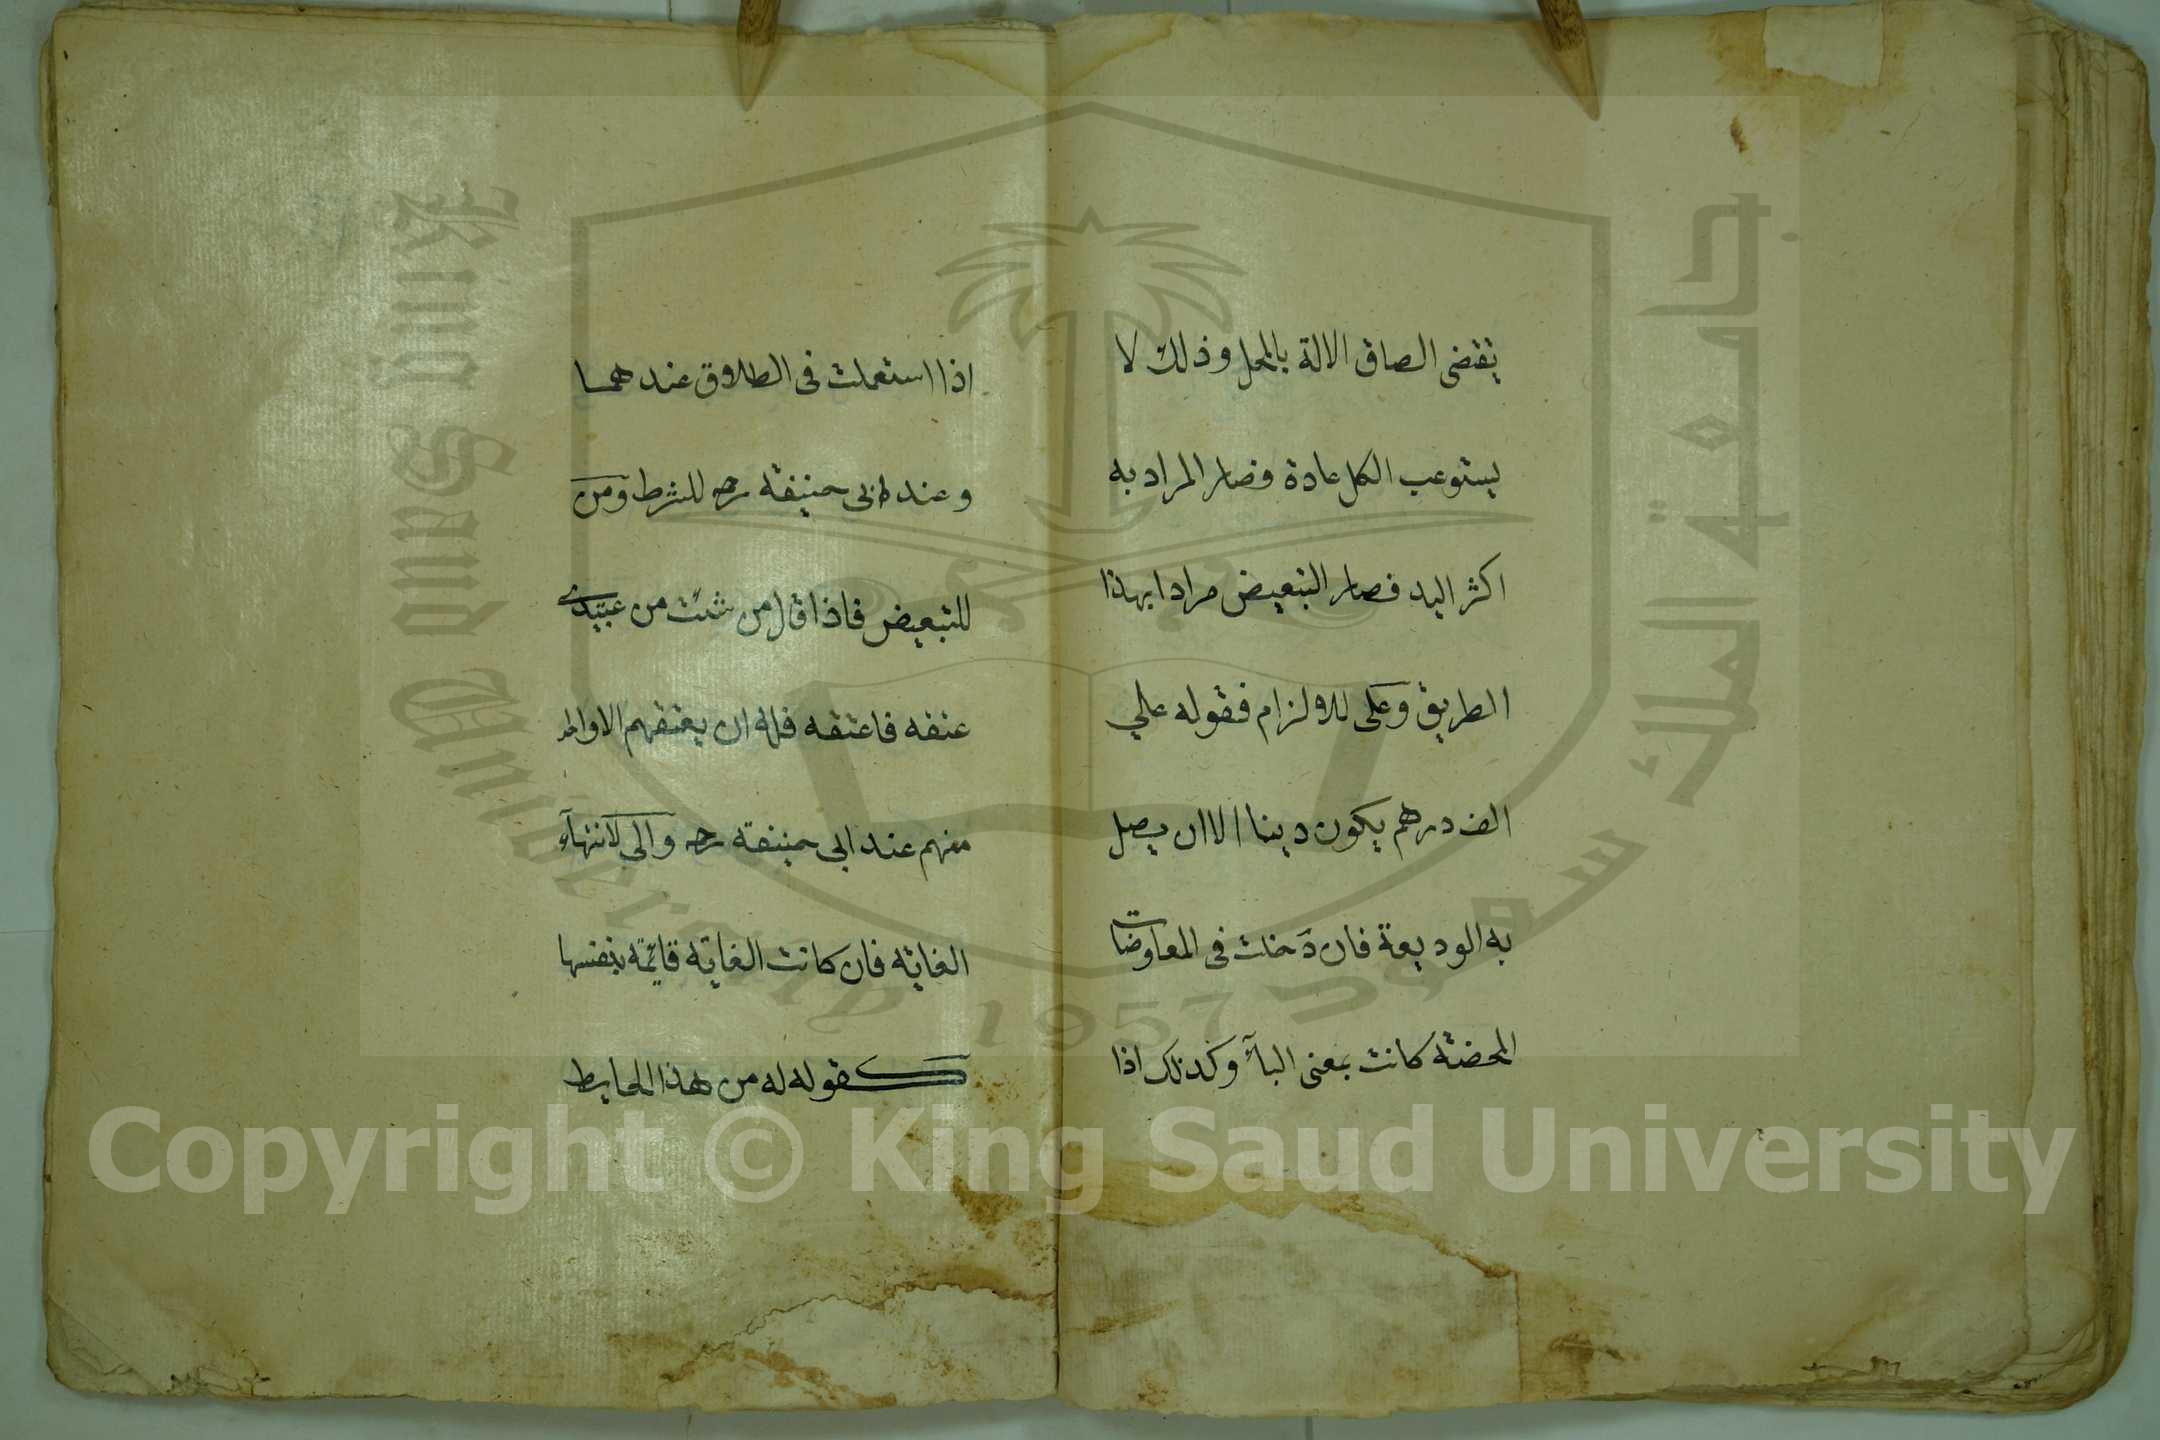 يقتضى الصاق الالة بالمحل وذلك لا
يستوعب الكل عادة فصار المراد به
اكثر اليد فصار التبعيض مرادا بهذا
الطريق وعلى للالزام فقوله علي
الف درهم يكون دينا الا ان يصل
به الوديعة فان دخلت فى المعاوضات
المحضة كانت بمعنى الباء وكذلك اذا
اذا استعملت فى الطلاق عندهما
وعند ابى حنيفة رحه للشرط ومن
للتبعيض فاذا قال من شئت من عبيدى
عتقه فاعتقه فله ان يعتقهم الا واحد
منهم عند ابى حنيفة رحه والى لانتهاء
الغاية فان كانت الغاية قائمة بنفسها
كقوله له من هذا الحايط
King Saud University
1957
جامعة الملك سعود
Copyright © King Saud University